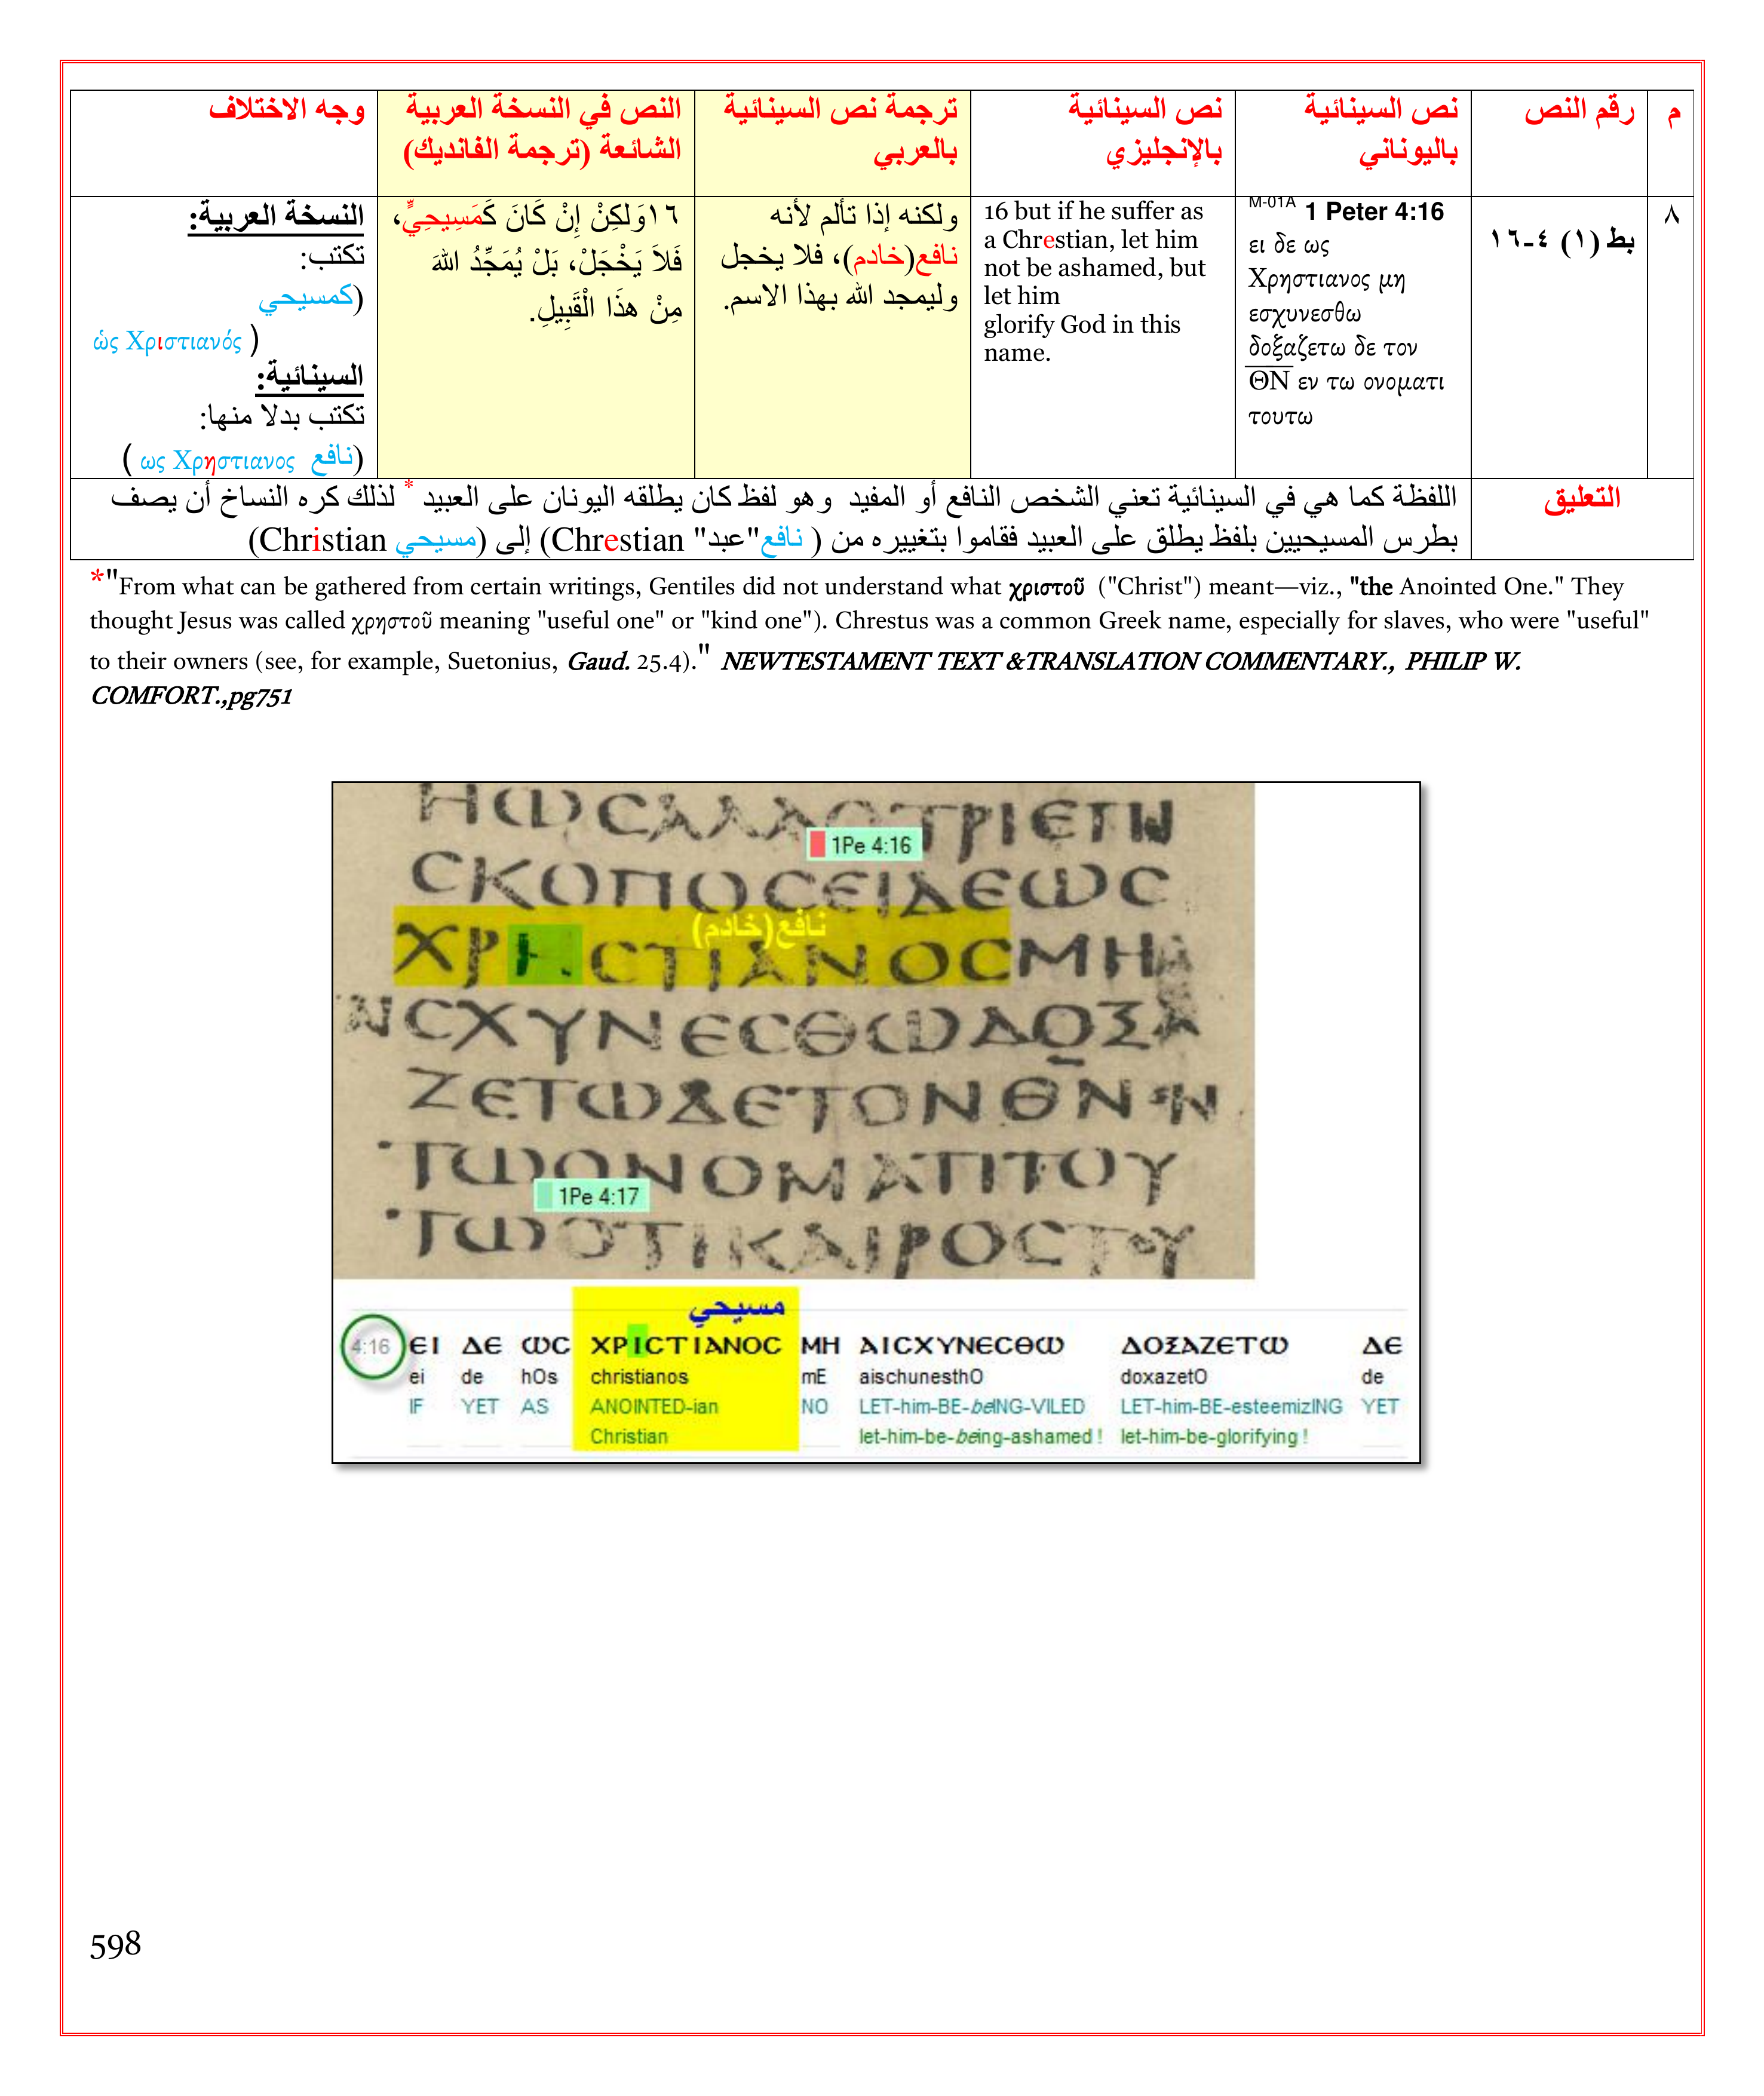 م
رقم النص
نص السينائية
باليوناني
نص السينائية
بالإنجليزي
ترجمة نص السينائية
بالعربي
النص في النسخة العربية
الشائعة (ترجمة الفانديك)
وجه الاختلاف
٨
بط (١) ٤-١٦
M-01A 1 Peter 4:16
ει δε ως
Χρηστιανος μη
εσχυνεσθω
δοξαζετω δε τον
Θ͞Ν εν τω ονοματι
τουτω
16 but if he suffer as
a Chrestian, let him
not be ashamed, but
let him
glorify God in this
name.
ولكنه إذا تألم لأنه
نافع(خادم)، فلا يخجل
وليمجد الله بهذا الاسم.
١٦وَلكِنْ إِنْ كَانَ كَمَسِيحِيٍّ،
فَلاَ يَخْجَلْ، بَلْ يُمَجِّدُ اللهَ
مِنْ هذَا الْقَبِيلِ.
النسخة العربية:
تكتب:
(كمسيحي
ὡς Χριστιανός )
السينائية:
تكتب بدلا منها:
(نافع ως Χρηστιανος )
التعليق
اللفظة كما هي في السينائية تعني الشخص النافع أو المفيد وهو لفظ كان يطلقه اليونان على العبيد * لذلك كره النساخ أن يصف
بطرس المسيحيين بلفظ يطلق على العبيد فقاموا بتغييره من ( نافع"عبد" Chrestian) إلى (مسيحي Christian)
*"From what can be gathered from certain writings, Gentiles did not understand what χριστοῦ ("Christ") meant—viz., "the Anointed One." They
thought Jesus was called χρηστοῦ meaning "useful one" or "kind one"). Chrestus was a common Greek name, especially for slaves, who were "useful"
to their owners (see, for example, Suetonius, Gaud. 25.4)." NEWTESTAMENT TEXT &TRANSLATION COMMENTARY., PHILIP W.
COMFORT.,pg751
ΗωϹΑΛΛΟΤΡΙΕΠΙ
1Pe 4:16
ϹΚΟΠΟϹΕΙΔΕωϹ
نافع(خادم)
ΧΡΗϹΤΙΑΝΟϹΜΗ
ϹΧΥΝΕϹΘωΔΟΞΑ
ΖΕΤωΔΕΤΟΝΘΝ
ΤωΟΝΟΜΑΤΙΤΟΥ
1Pe 4:17
ΤωΟΤΙΚΑΙΡΟϹΤΟΥ
مسيحي
4:16 ΕΙ ΔΕ ωϹ ΧΡΙϹΤΙΑΝΟϹ ΜΗ ΑΙϹΧΥΝΕϹΘω ΔΟΞΑΖΕΤω ΔΕ
ei de hOs christianos mE aischunesthO doxazetO de
IF YET AS ANOINTED-ian NO LET-him-BE-beING-VILED LET-him-BE-esteemizING YET
Christian let-him-be-being-ashamed ! let-him-be-glorifying !
598